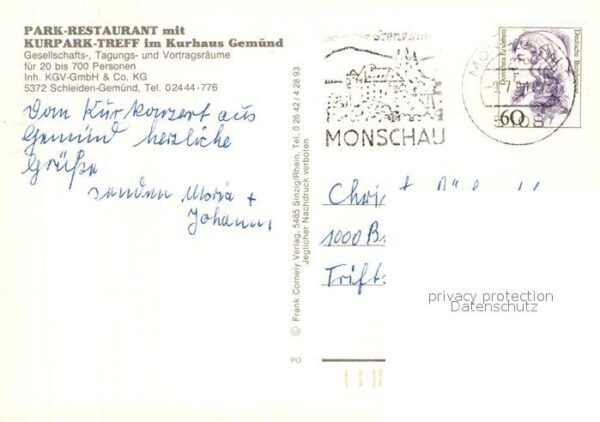 PARK-RESTAURANT mit
KURPARK-TREFF im Kurhaus Gemünd
Gesellschafts-, Tagungs- und Vortragsräume
für 20 bis 700 Personen
Inh. KGV-GmbH & Co. KG
5372 Schleiden-Gemünd, Tel. 02444-776
Vom Kurkonzert aus
Gemünd herzliche
Grüße
senden Maria +
Johann
© Frank Cornely Verlag, 5485 Sinzig/Rhein, Tel. 0 26 42 / 4 28 93
Jeglicher Nachdruck verboten
PO
MONSCHAU
Deutsche Bundespost
60
1000 B
Trift
privacy protection
Datenschutz